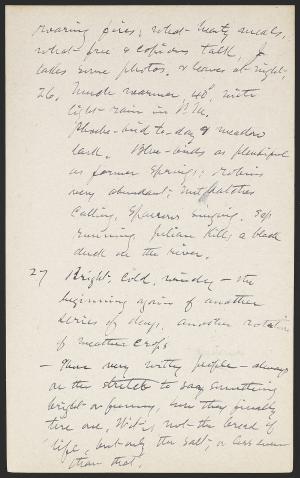 roaring fires, what hearty meals,
what free & copious talk, J
takes some photos. & leaves at night.
26. Much warmer 40°, with
light rain in P.M.
Phoebe-bird to-day & meadow
lark. Blue-birds as plentiful
as former Springs; robins
very abundant; nuthatches
calling, Sparrows singing. Sap
running. Julian kills a black
duck on the river.
27 Bright, Cold, windy – the
beginning again of another
series of days, another rotation
of weather crops
– These very witty people – always
on the stretch to say something
bright or funny, how they finally
tire one, Wit is not the bread of
life, but only the salt, or less even
than that.